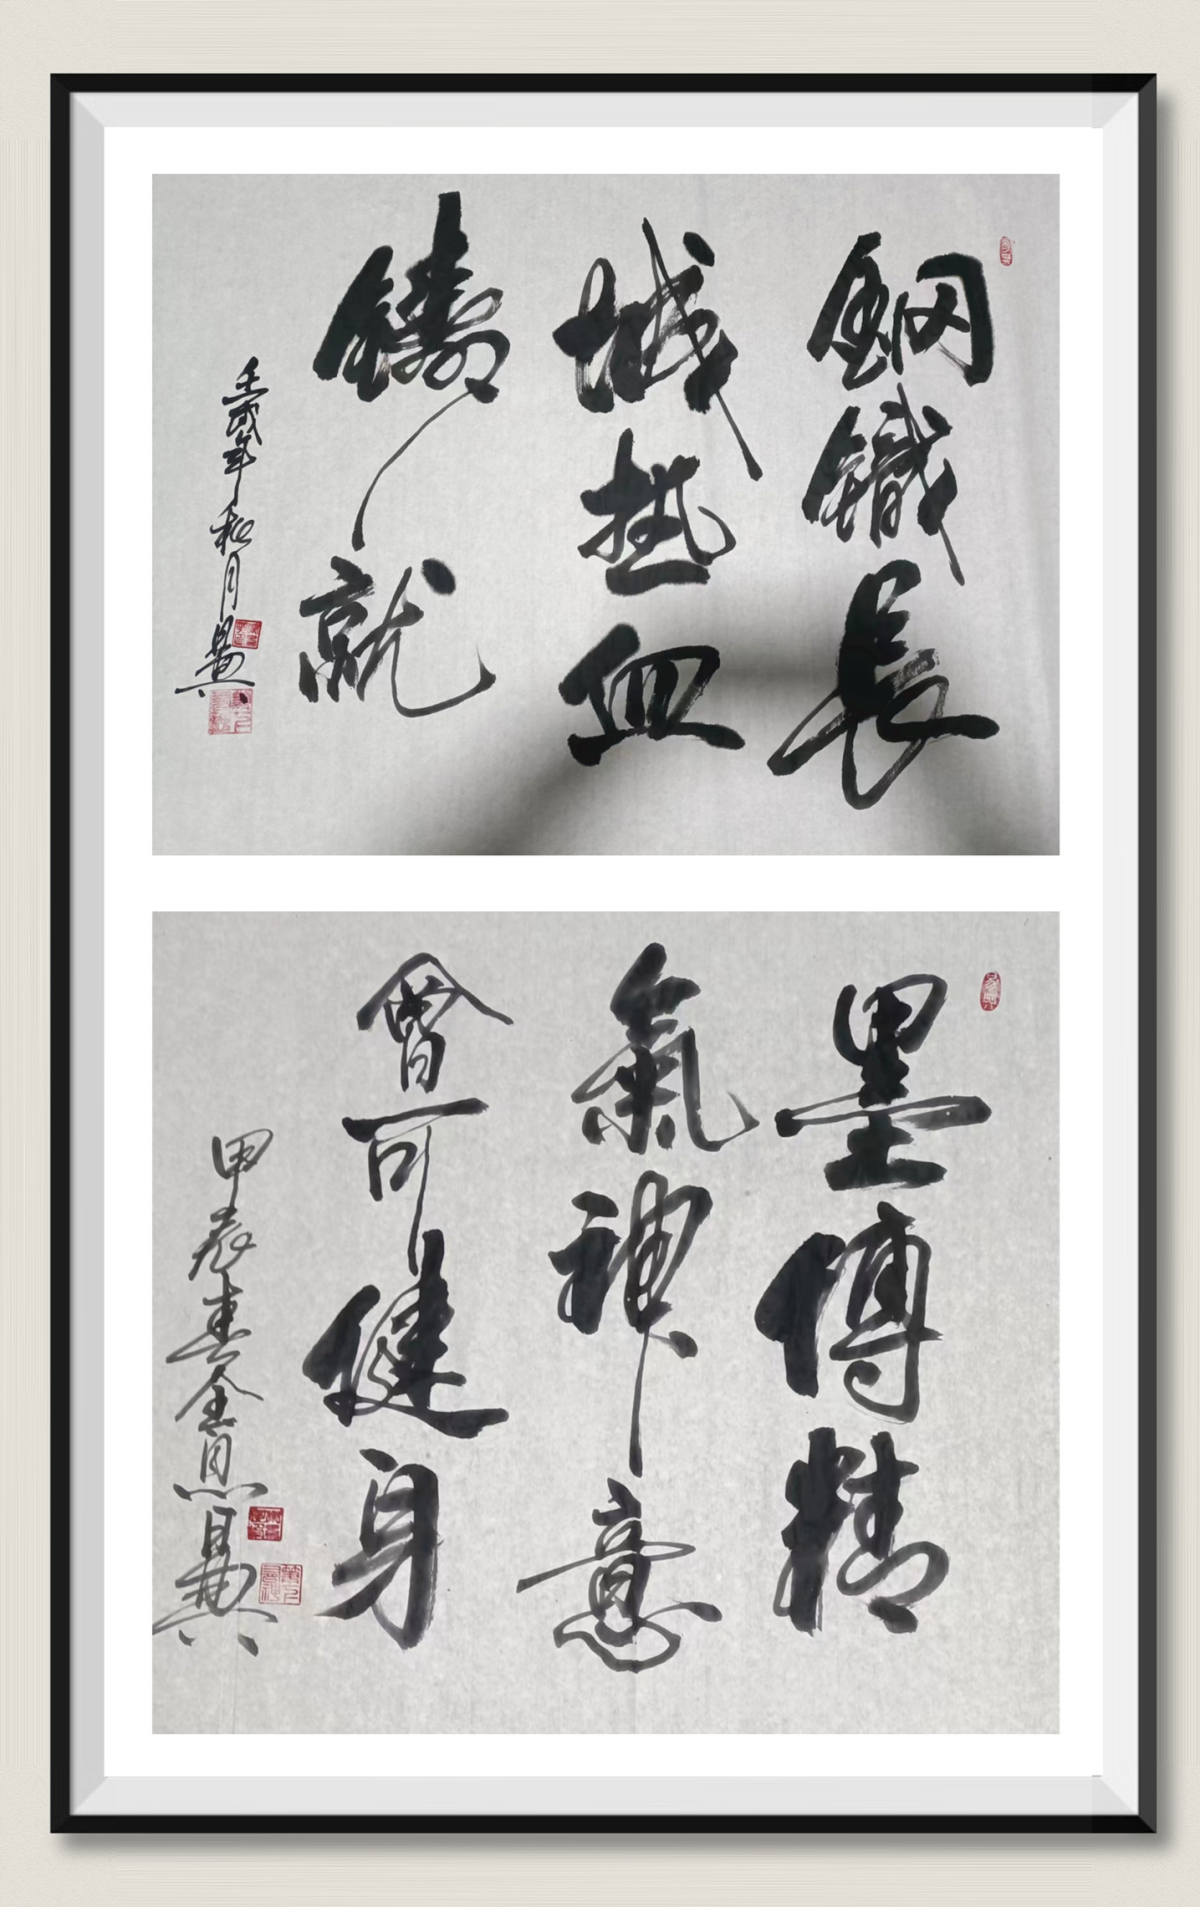 鋼鐵長
城热血
鑄就
壬戌年秋月
墨傳精
氣神意
會可健身
甲辰春